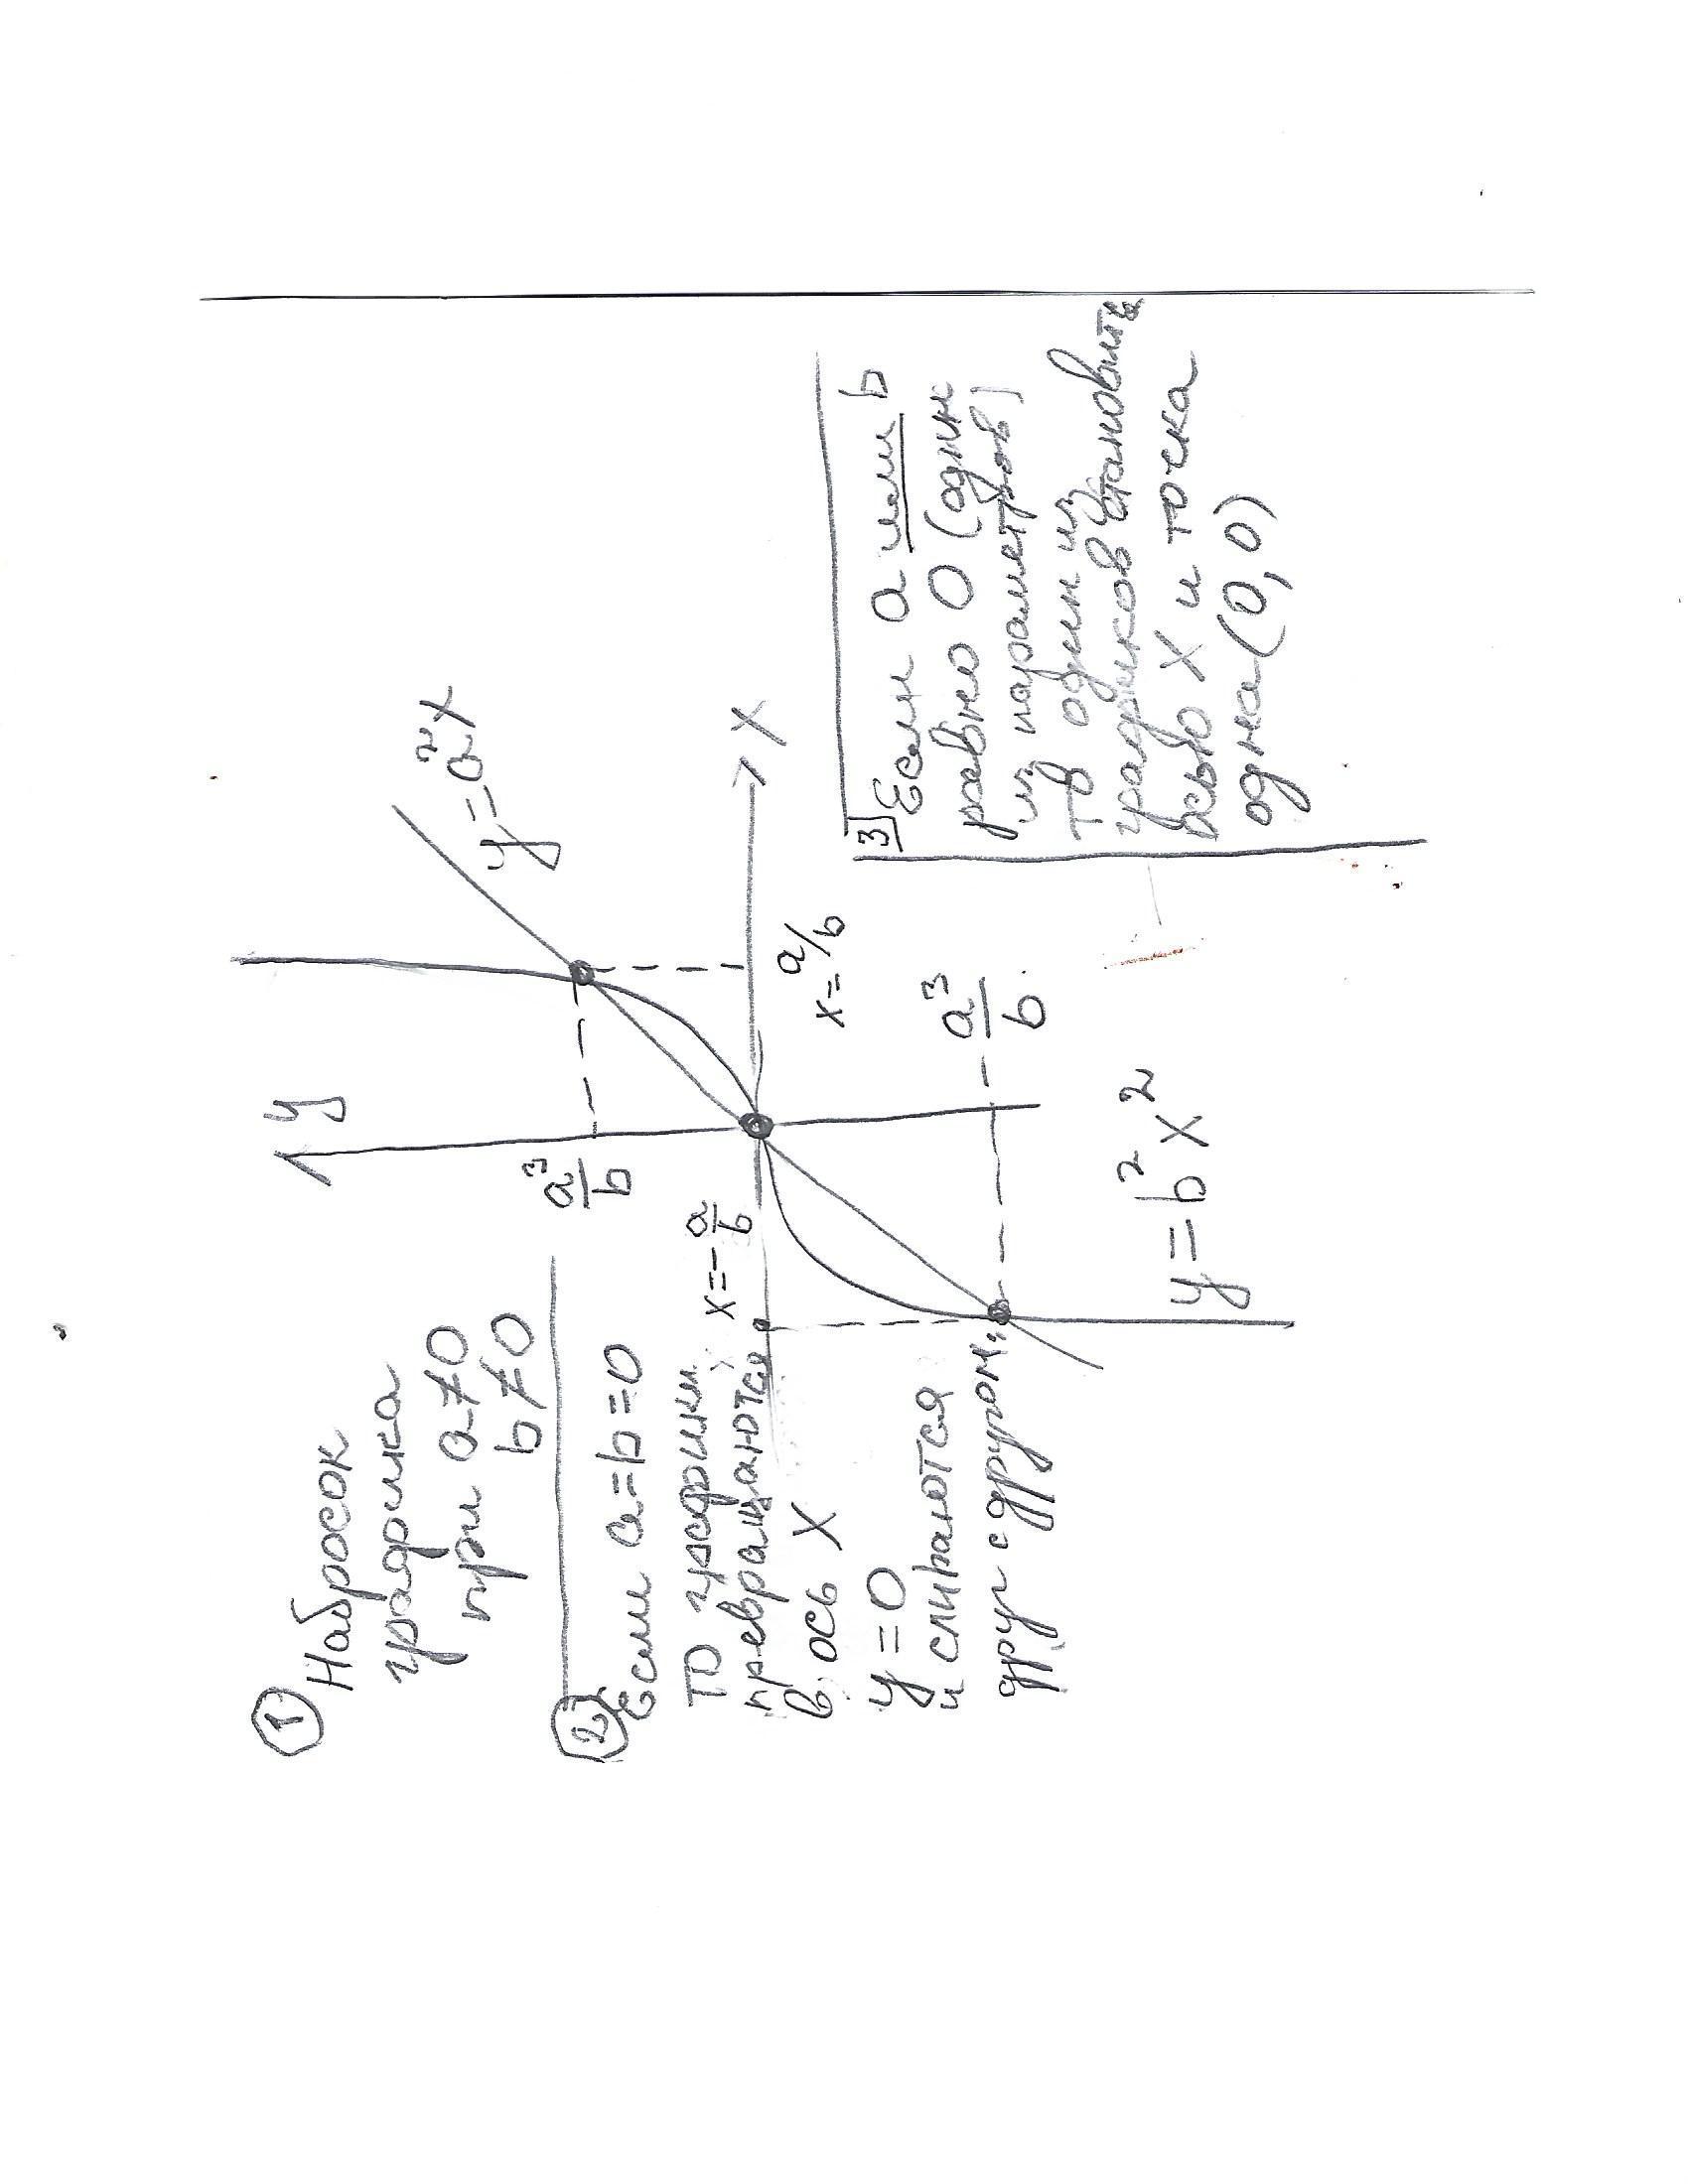 1 Набросок
графика
при a≠0
b≠0
2 Если a=b=0
то графики
превращаются
в ось X
y=0
и сливаются
друг с другом.
y
a³/b
x=-a/b
y=a²x
X
x=a/b
-a³/b
y=b²x²
3 Если a или b
равно 0 (один
из параметров)
то один из
графиков становится
осью X и точка
одна (0,0)